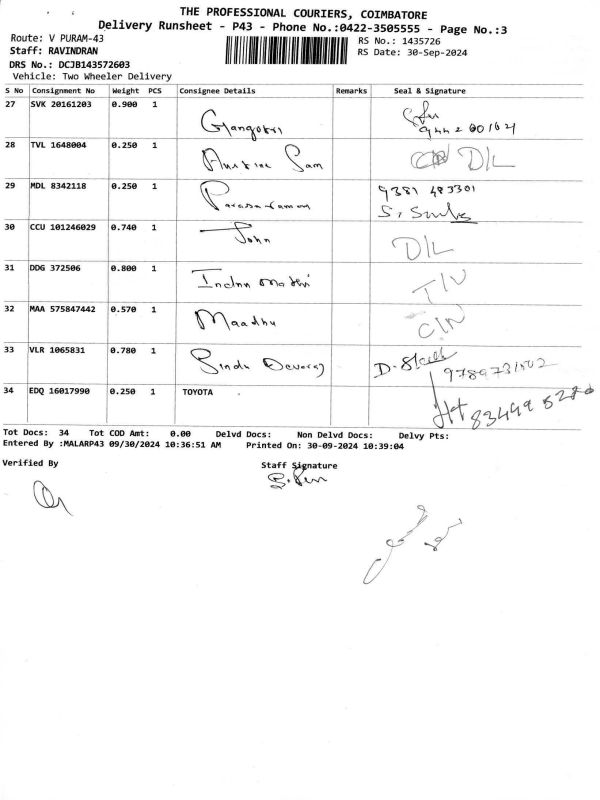 THE PROFESSIONAL COURIERS, COIMBATORE
Delivery Runsheet - P43 - Phone No.:0422-3505555 - Page No.:3
Route: V PURAM-43 RS No.: 1435726
Staff: RAVINDRAN RS Date: 30-Sep-2024
DRS No.: DCJB143572603
Vehicle: Two Wheeler Delivery
S No Consignment No Weight PCS Consignee Details Remarks Seal & Signature
27 SVK 20161203 0.900 1 Gangotri
28 TVL 1648004 0.250 1 Sam D/L
29 MDL 8342118 0.250 1 Parasuraman 9381 483301
30 CCU 101246029 0.740 1 John D/L
31 DDG 372506 0.800 1 Indru mathi
32 MAA 575847442 0.570 1 Maadhu
33 VLR 1065831 0.780 1 Sindu Devaraj
34 EDQ 16017990 0.250 1 TOYOTA
Tot Docs: 34 Tot COD Amt: 0.00 Delvd Docs: Non Delvd Docs: Delvy Pts:
Entered By :MALARP43 09/30/2024 10:36:51 AM Printed On: 30-09-2024 10:39:04
Verified By Staff Signature